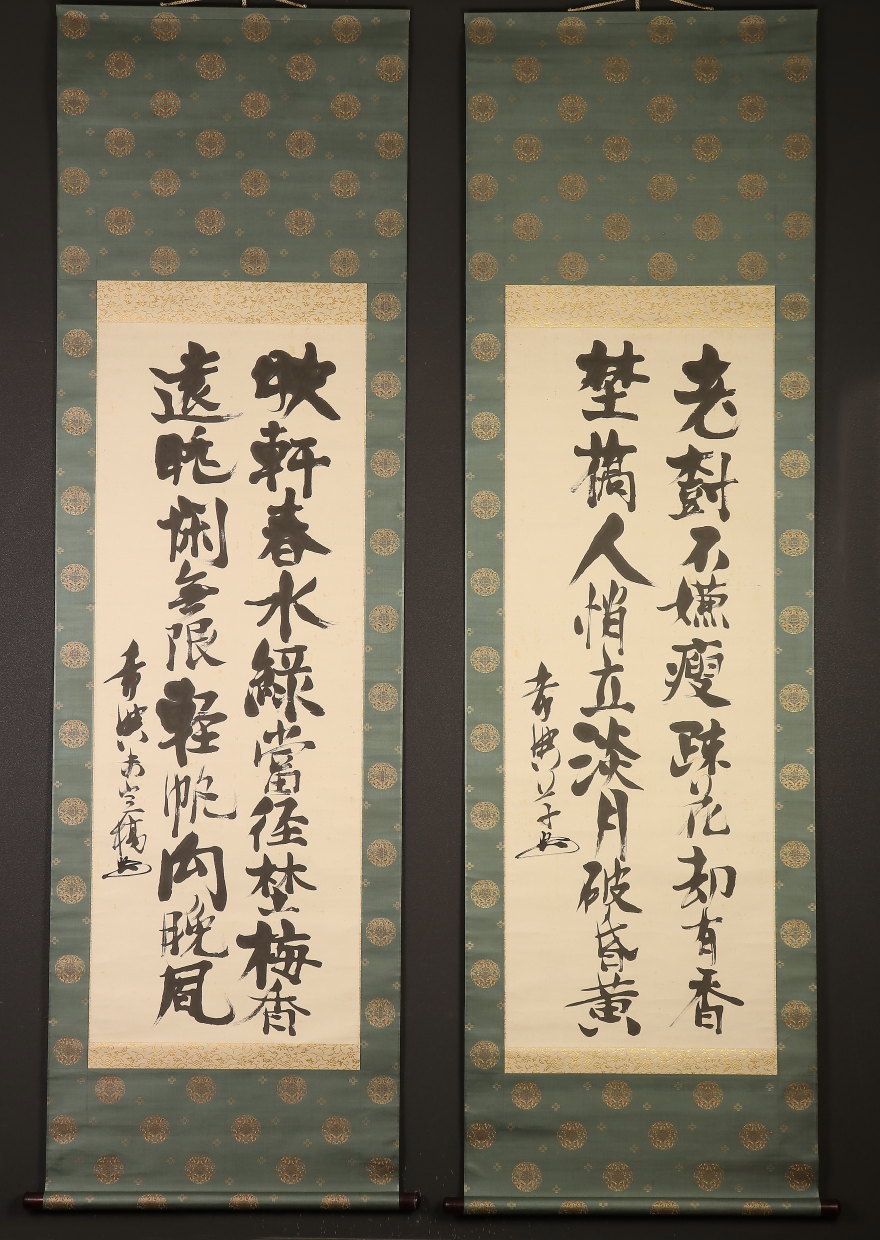 老樹不嫌瘦疎花却有香
埜橋人悄立淡月破昏黄
映軒春水綠當径埜梅香
遠眺無限軽帆向晚風